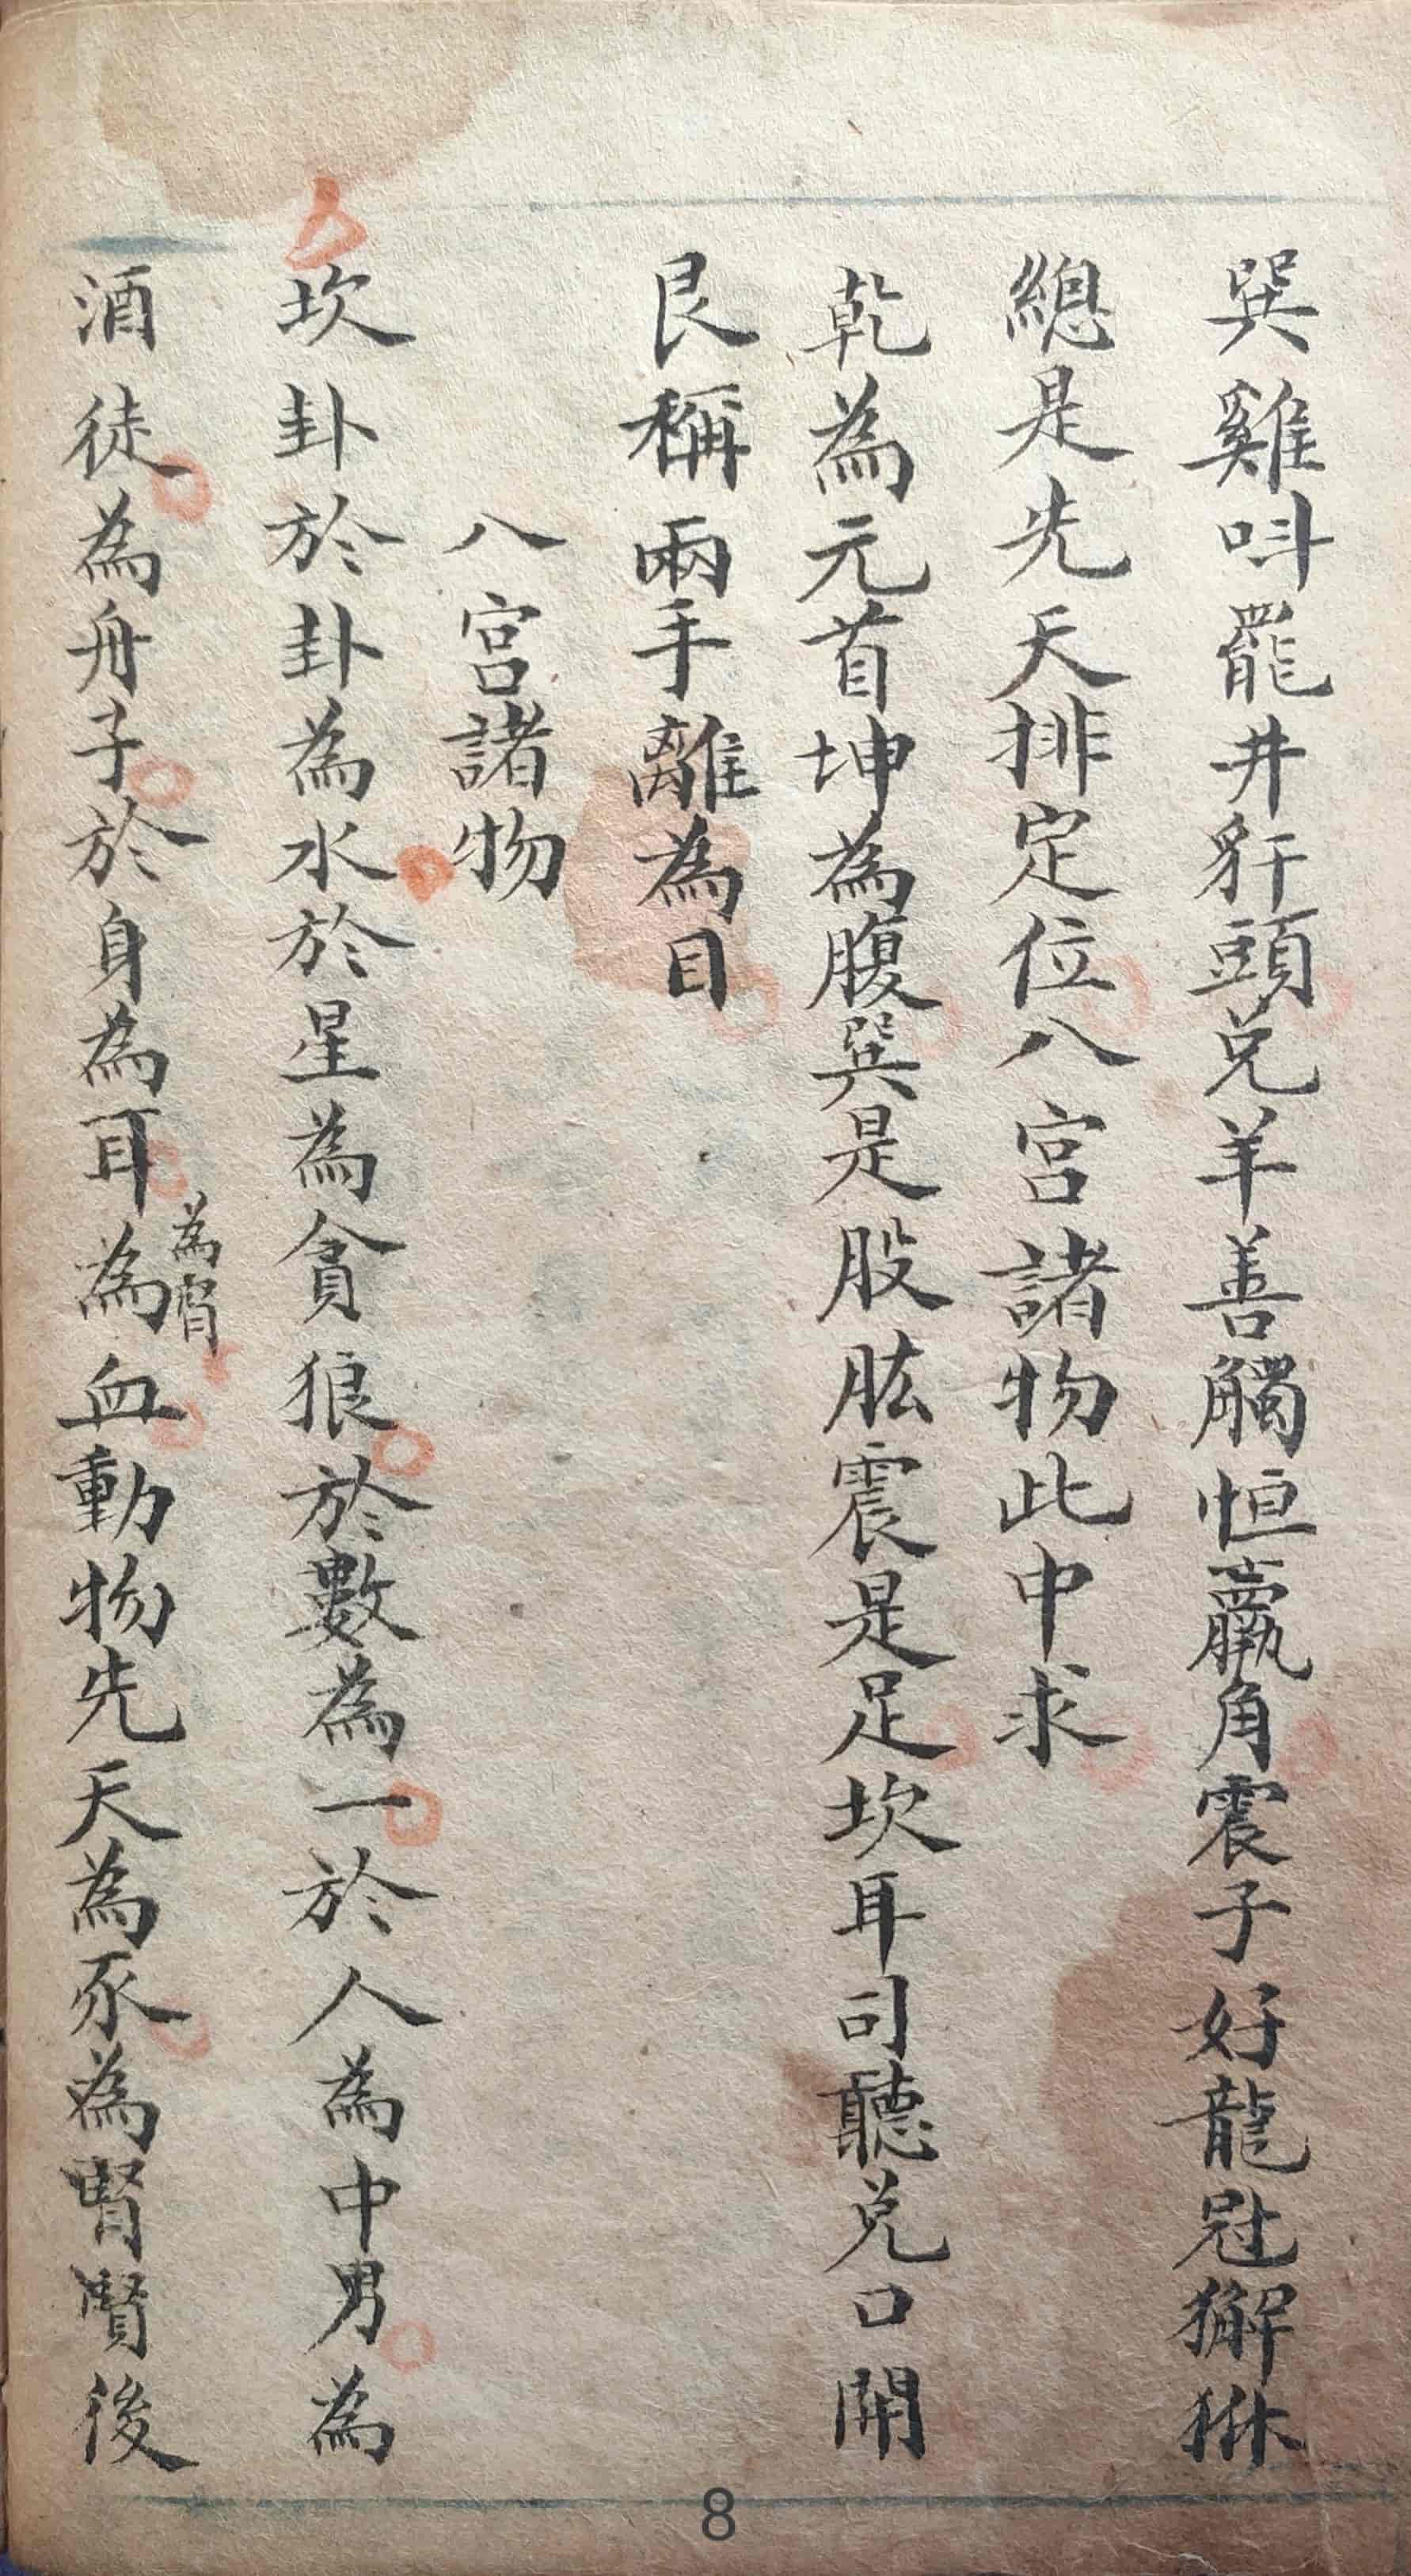 巽雞呌罷井犴頭兌羊善觸恒羸角震子好龍尅獬貅
總是先天排定位八宮諸物此中求
乾為元首坤為腹巽是股肱震是足坎耳司聽兌口開
艮稱兩手離為目
八宮諸物
坎卦於卦為水於星為貪狼於數為一於人為中男為
酒徒為舟子於身為耳為血動物先天為豕為腎賢後
為腎
8